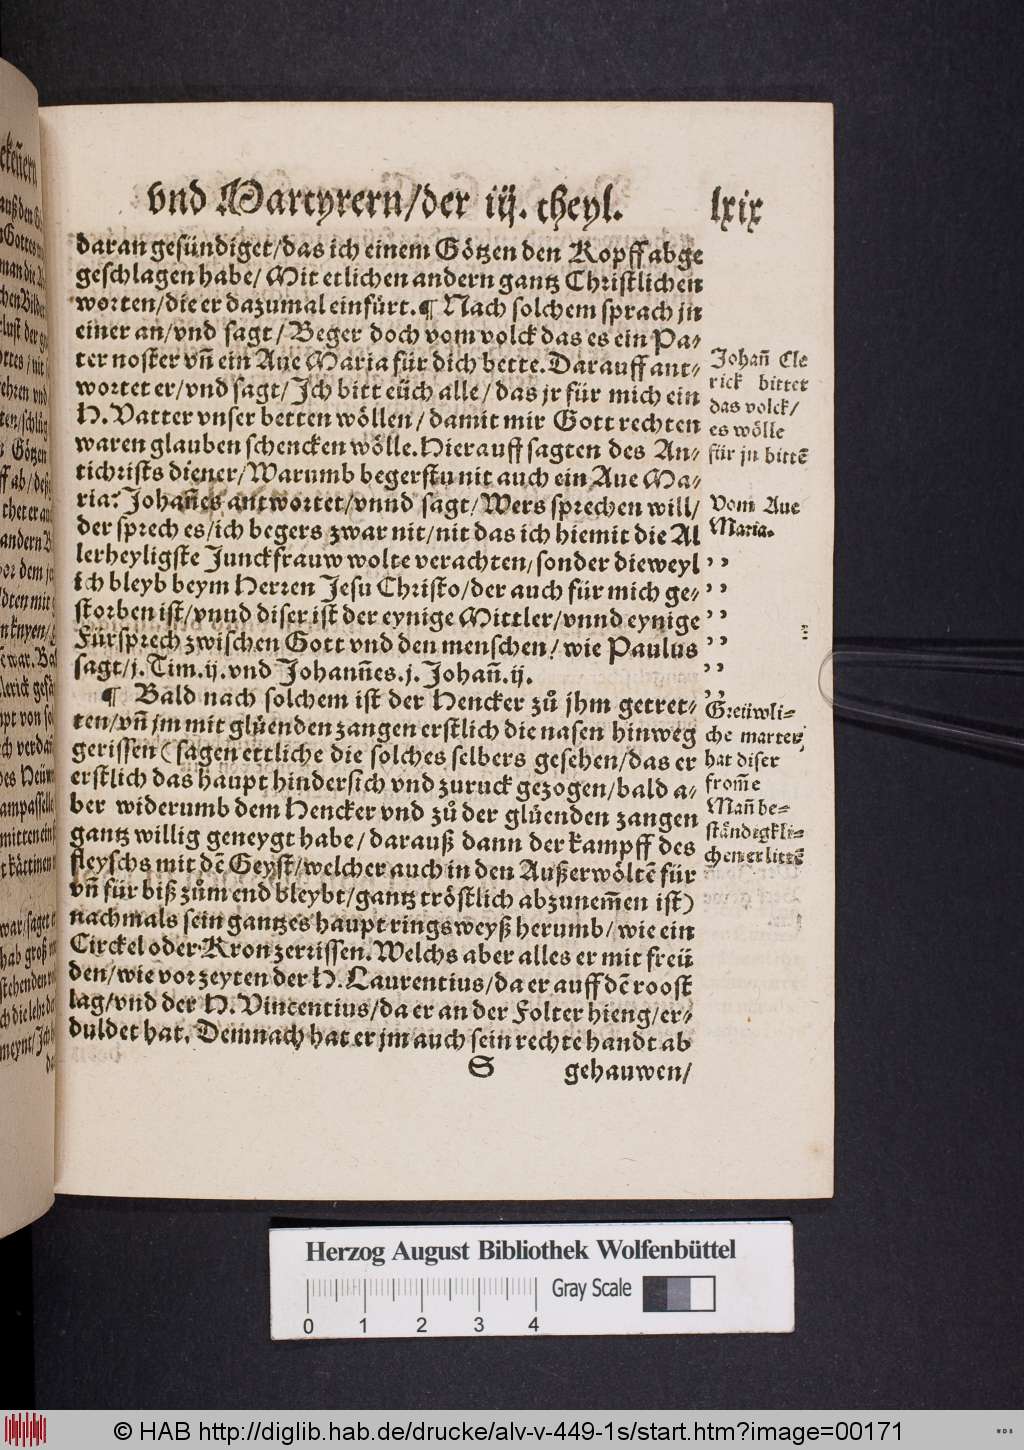 vnd Martyrern/der iij. theyl. lxix
daran gesündiget/das ich einem Götzen den Kopff abge
geschlagen habe/ Mit etlichen andern gantz Christlichen
worten/die er dazumal einfürt.¶ Nach solchem sprach jn
einer an/vnd sagt/ Beger doch vom volck das es ein Pa⸗
ter noster vñ ein Aue Maria für dich bette. Darauff ant⸗
wortet er/vnd sagt/ Ich bitt eüch alle/ das jr für mich ein
H. Vatter vnser betten wöllen/ damit mir Gott rechten
waren glauben schencken wölle. Hierauff sagten des An⸗
tichrists diener/Warumb begerstu nit auch ein Aue Ma⸗
ria? Johañes antwortet/vnnd sagt/Wers sprechen will/
der sprech es/ich begers zwar nit/nit das ich hiemit die Al
lerheyligste Junckfrauw wolte verachten/sonder dieweyl
ich bleyb beym Herren Jesu Christo/der auch für mich ge⸗
storben ist/vnnd diser ist der eynige Mittler/vnnd eynige
Fürsprech zwischen Gott vnd den menschen/ wie Paulus
sagt/j. Tim.ij.vnd Johannes.j. Johañ.ij.
¶ Bald nach solchem ist der Hencker zů jhm getret⸗
ten/vñ jm mit glüenden zangen erstlich die nasen hinweg
gerissen (sagen ettliche die solches selbers gesehen/das er
erstlich das haupt hindersich vnd zuruck gezogen/bald a⸗
ber widerumb dem Hencker vnd zů der glüenden zangen
gantz willig geneygt habe/ darauß dann der kampff des
fleyschs mit dē Geyst/welcher auch in den Außerwöltē für
vñ für biß zům end bleybt/gantz tröstlich abzunem̄en ist)
nachmals sein gantzes haupt ringsweyß herumb/ wie ein
Circkel oder Kron zerrissen. Welchs aber alles er mit freü
den/wie vor zeyten der H. Laurentius/da er auff dē roost
lag/vnd der H. Vincentius/da er an der Folter hieng/er⸗
duldet hat. Demnach hat er jm auch sein rechte handt ab
S gehauwen/
Johañ Cle
rick bittet
das volck/
es wölle
für jn bittē
Vom Aue
Maria.
,,
,,
,,
,,
,,
,,
Greüwli⸗
che marter
hat diser
from̄e
Mañ be⸗
ständigkli⸗
chen erlittē
Herzog August Bibliothek Wolfenbüttel
Gray Scale
0 1 2 3 4
© HAB http://diglib.hab.de/drucke/alv-v-449-1s/start.htm?image=00171